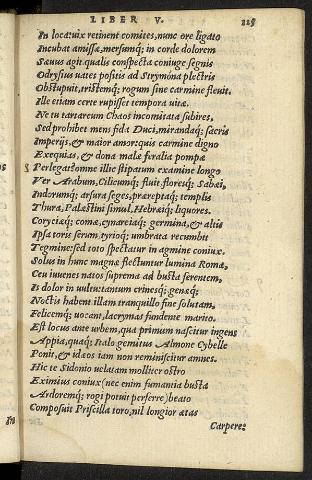 LIBER V. 225
In loca: uix retinent comites, nunc ore ligato
Incubat amissæ, mersumq; in corde dolorem
Sæuus agit. qualis conspecta coniuge segnis
Odrysius uates positis ad Strymona plectris
Obstupuit, tristemq; rogum sine carmine fleuit.
Ille etiam certe rupisset tempora uitæ,
Ne tu tartareum Chaos incomitata subires,
Sed prohibet mens fida Duci, mirandaq; sacris
Imperijs, & maior amor: quis carmine digno
Exequias, & dona malæ feralia pompæ
Perlegat? omne illic stipatum examine longo
Ver Arabum, Cilicumq; fluit, floresq; Sabæi,
Indorumq; arsura seges, præreptaq; templis
Thura, Palæstini simul, Hebræiq; liquores,
Coryciæq; comæ, cynareiaq; germina, & altis
Ipsa toris serum, tyrioq; umbrata recumbit
Tegmine: sed toto spectatur in agmine coniux.
Solus in hunc magnæ flectuntur lumina Romæ,
Ceu iuuenes natos suprema ad busta ferentem,
Is dolor in uultu: tantum crinesq; genæq;
Noctis habent. illam tranquillo fine solutam,
Felicemq; uocant, lacrymas fundente marito.
Est locus ante urbem, qua primum nascitur ingens
Appia, quaq; Italo gemitus Almone Cybelle
Ponit, & idæos iam non reminiscitur amnes.
Hic te Sidonio uelatam molliter ostro
Eximius coniux (nec enim fumantia busta
Ardoremq; rogi potuit perferre) beato
Composuit Priscilla toro, nil longior ætas
Carpere: